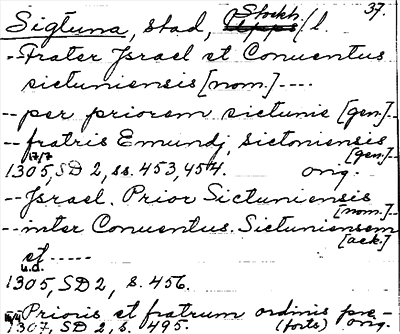 37.
Sigtuna, stad, Stockh./l.
--Frater Jsrael et Conuentus
sictuniensis [nom.]----
--per priorem sictunie [gen.]--
--fratris Emundj, sictoniensis
[gen.]--
17/7
1305, SD 2, ss. 453, 454. orig.
--Jsrael. Prior Sictuniensis
[nom.]--
--inter Conuentus. Sictuniensem
[ack.]
et-----
u.d.
1305, SD 2, s. 456.
--Prioris et fratrum ordinis pre-
1307, SD 2, s. 495. (forts) orig.